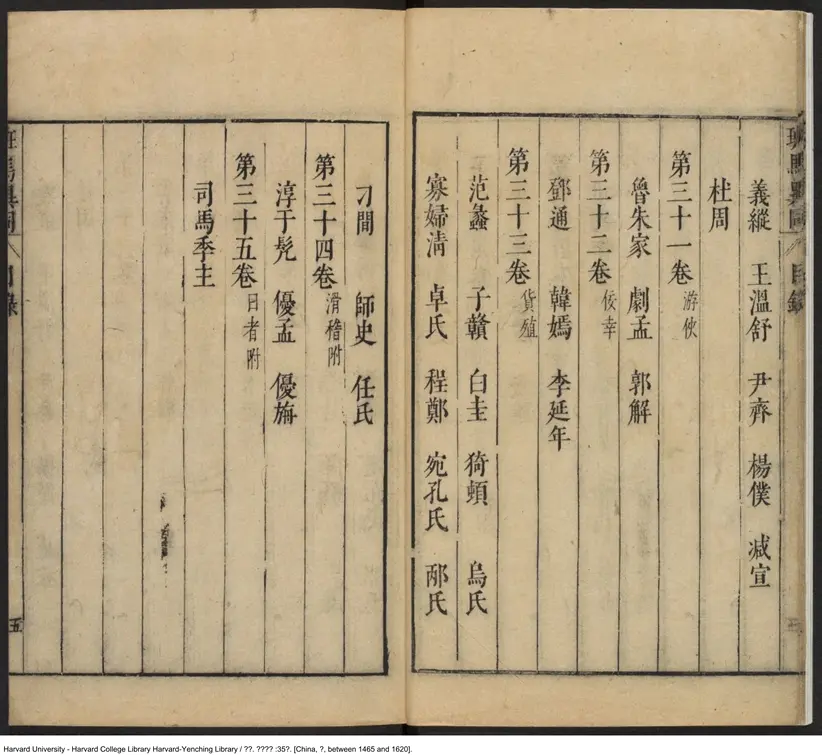 班馬異同 目錄
義縱 王溫舒 尹齊 楊僕 減宣
杜周
第三十一卷 游俠
魯朱家 劇孟 郭解
第三十二卷 佞幸
鄧通 韓嫣 李延年
第三十三卷 貨殖
范蠡 子贛 白圭 猗頓 烏氏
寡婦清 卓氏 程鄭 宛孔氏 邴氏
刁間 師史 任氏
第三十四卷 滑稽附
淳于髡 優孟 優旃
第三十五卷 日者附
司馬季主
班馬異同 目錄 五
Harvard University - Harvard College Library Harvard-Yenching Library / ??. ???? :35?. [China, ?, between 1465 and 1620].